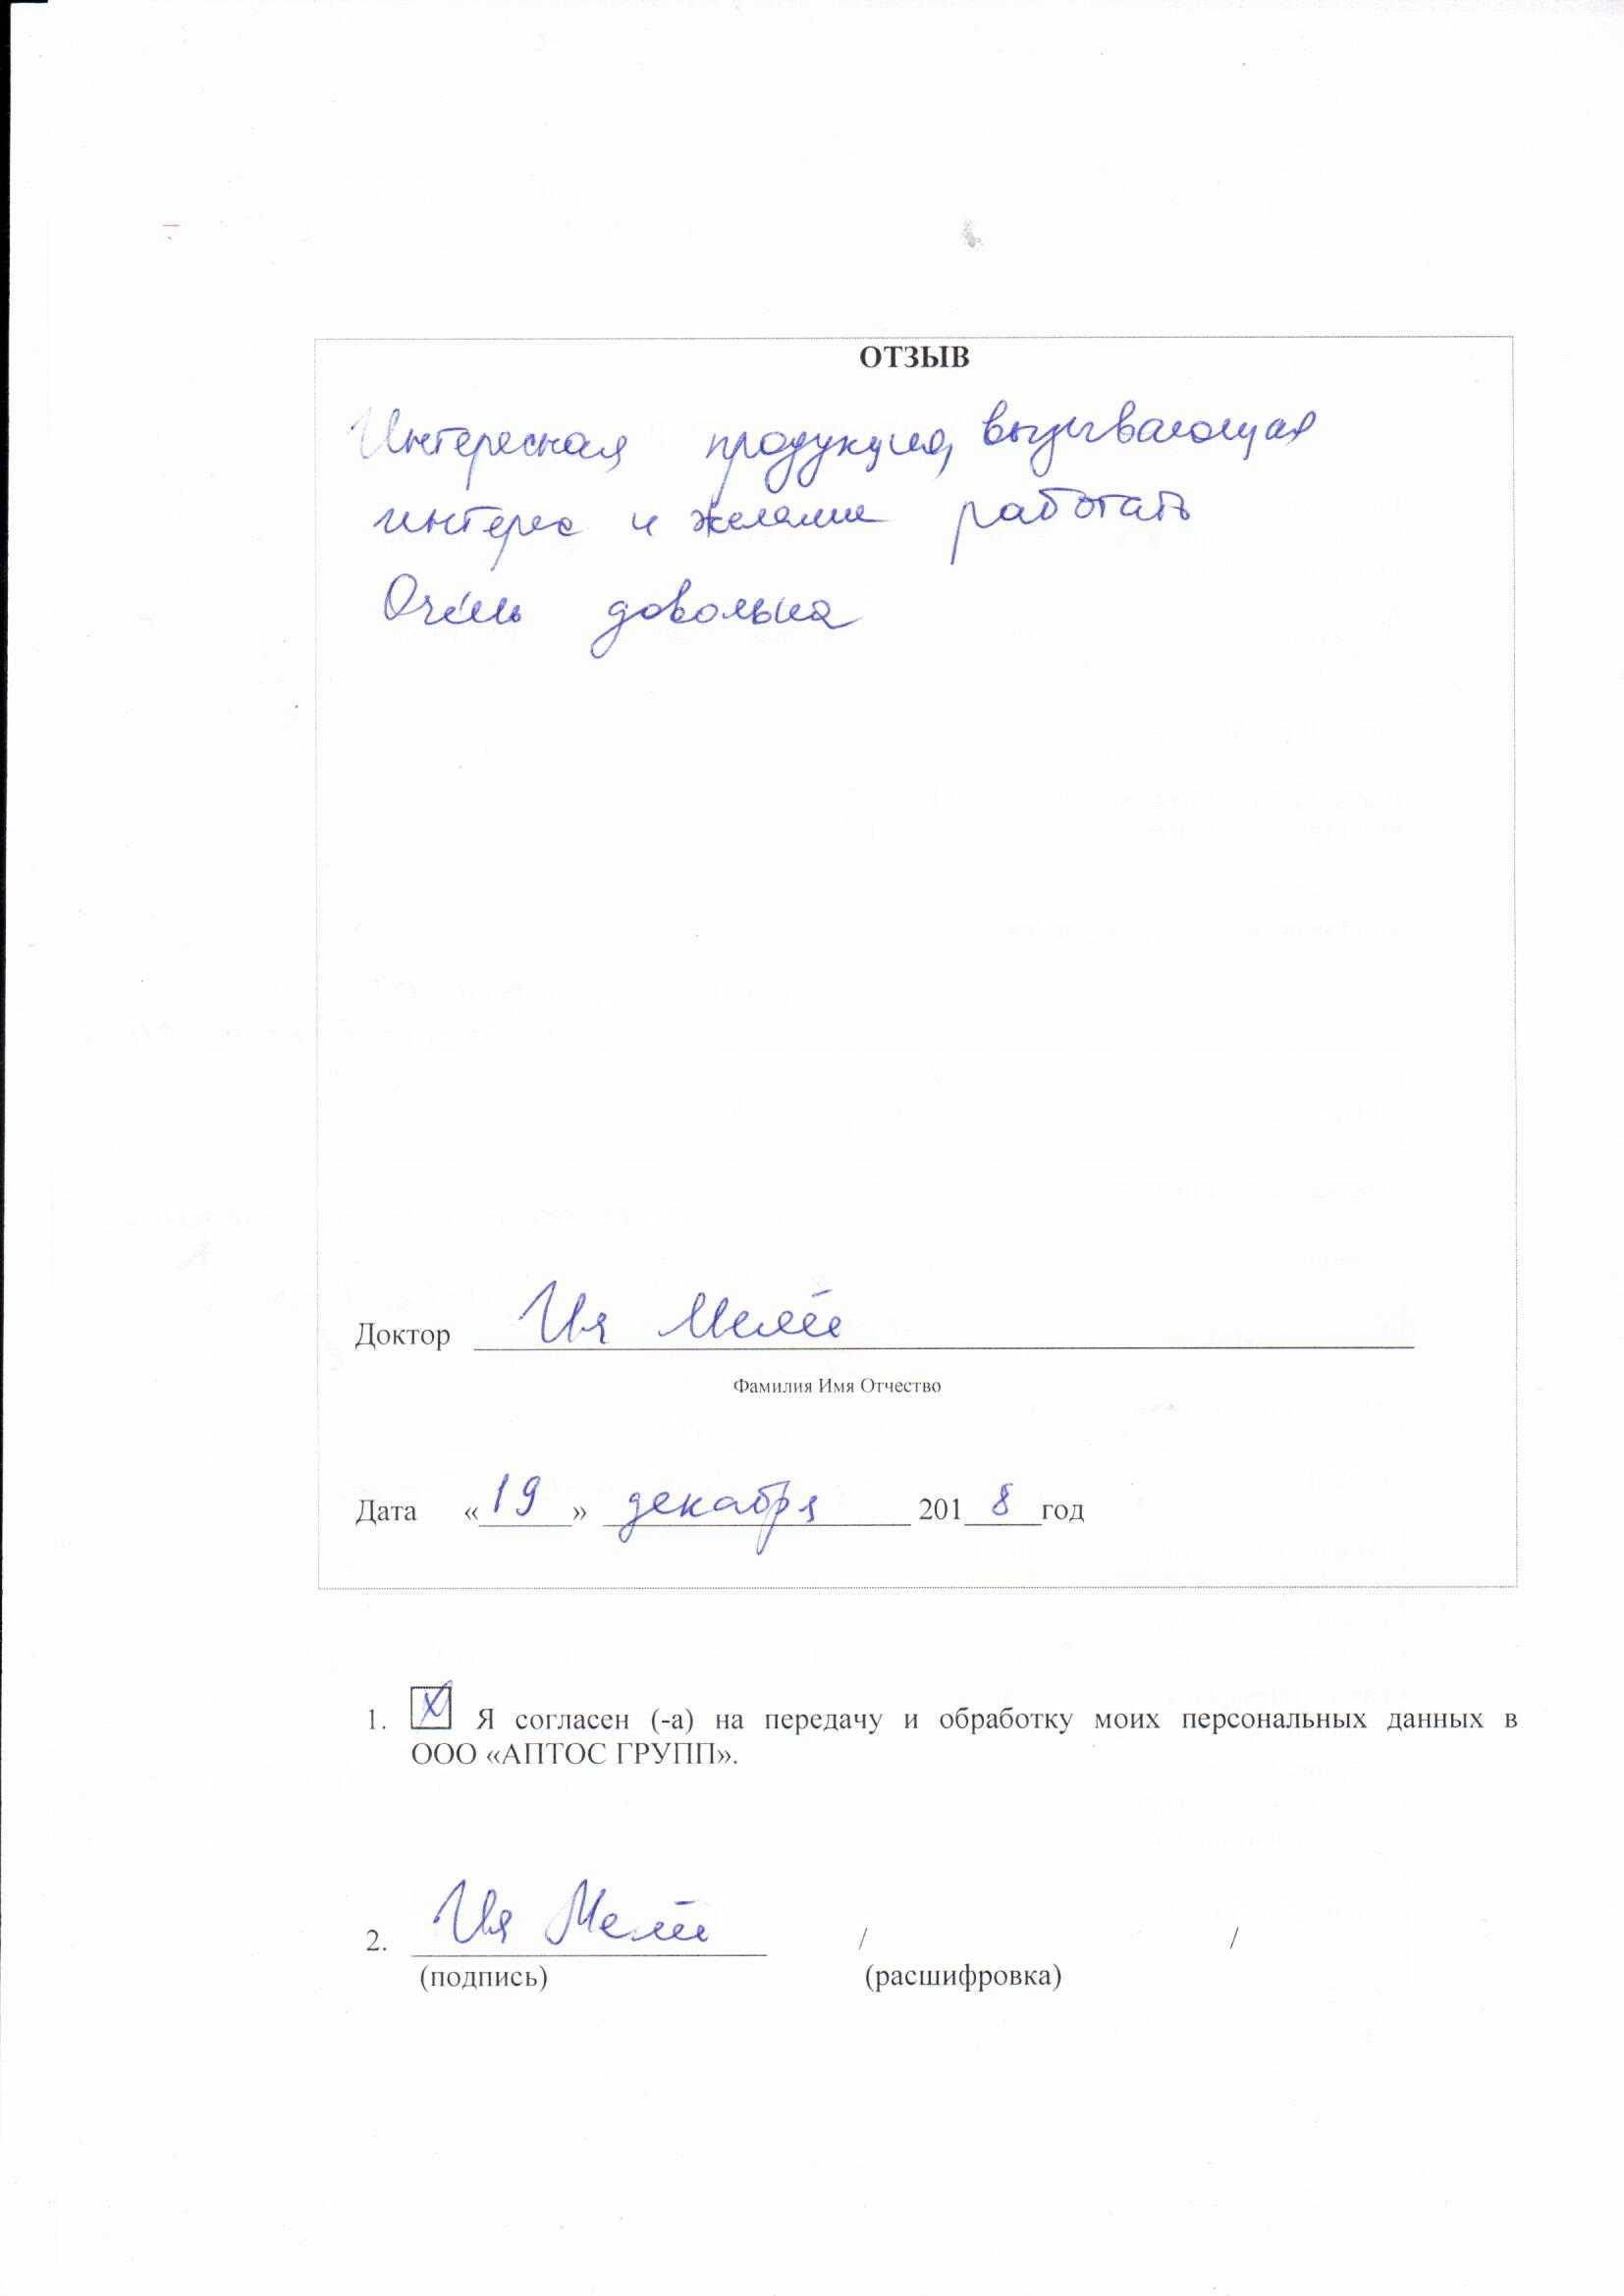 ОТЗЫВ
Интересная продукция, вызывающая
интерес и желание работать
Очень довольна
Доктор Ия
Фамилия Имя Отчество
Дата «19» декабря 2018 год
1. Я согласен (-а) на передачу и обработку моих персональных данных в
ООО «АПТОС ГРУПП».
2. Ия / /
(подпись) (расшифровка)